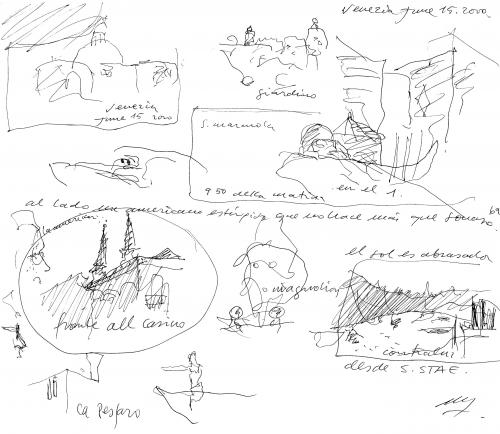 Venezia June 15. 2000.
Venezia
June 15 2000
giardino
S. marcuola
9 50 della matina
en el 1.
al lado un americano estúpido que no hace más que
69
l'americano
el sol es abrasador
magnolia
fronte all casino
contraluz
desde S. STAE.
ca pesaro